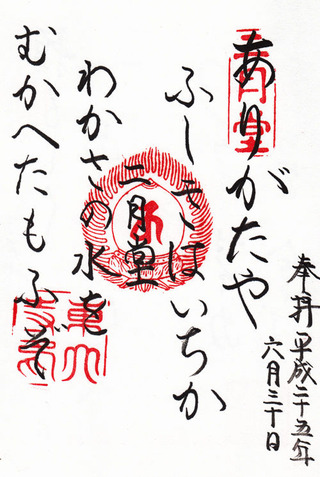 奉拝 平成二十五年
六月三十日
ありがたや
ふしぎはいちか
二月堂
わかさの水を
むかへたもふぞ
二月堂